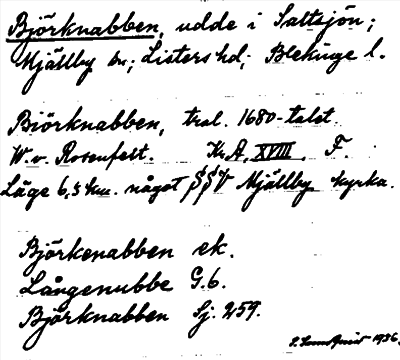 Björknabben, udde i Saltsjön;
Mjällby sn; Listers hd; Blekinge l.
Biörknabben, trol. 1680-talet
W. v. Rosenfelt. Kr. A. XVIII. F.
Läge 6,5 km. något SSV Mjällby kyrka.
Björkenabben ek.
Långenubbe G.6.
Björknabben Sj. 259.
1936.